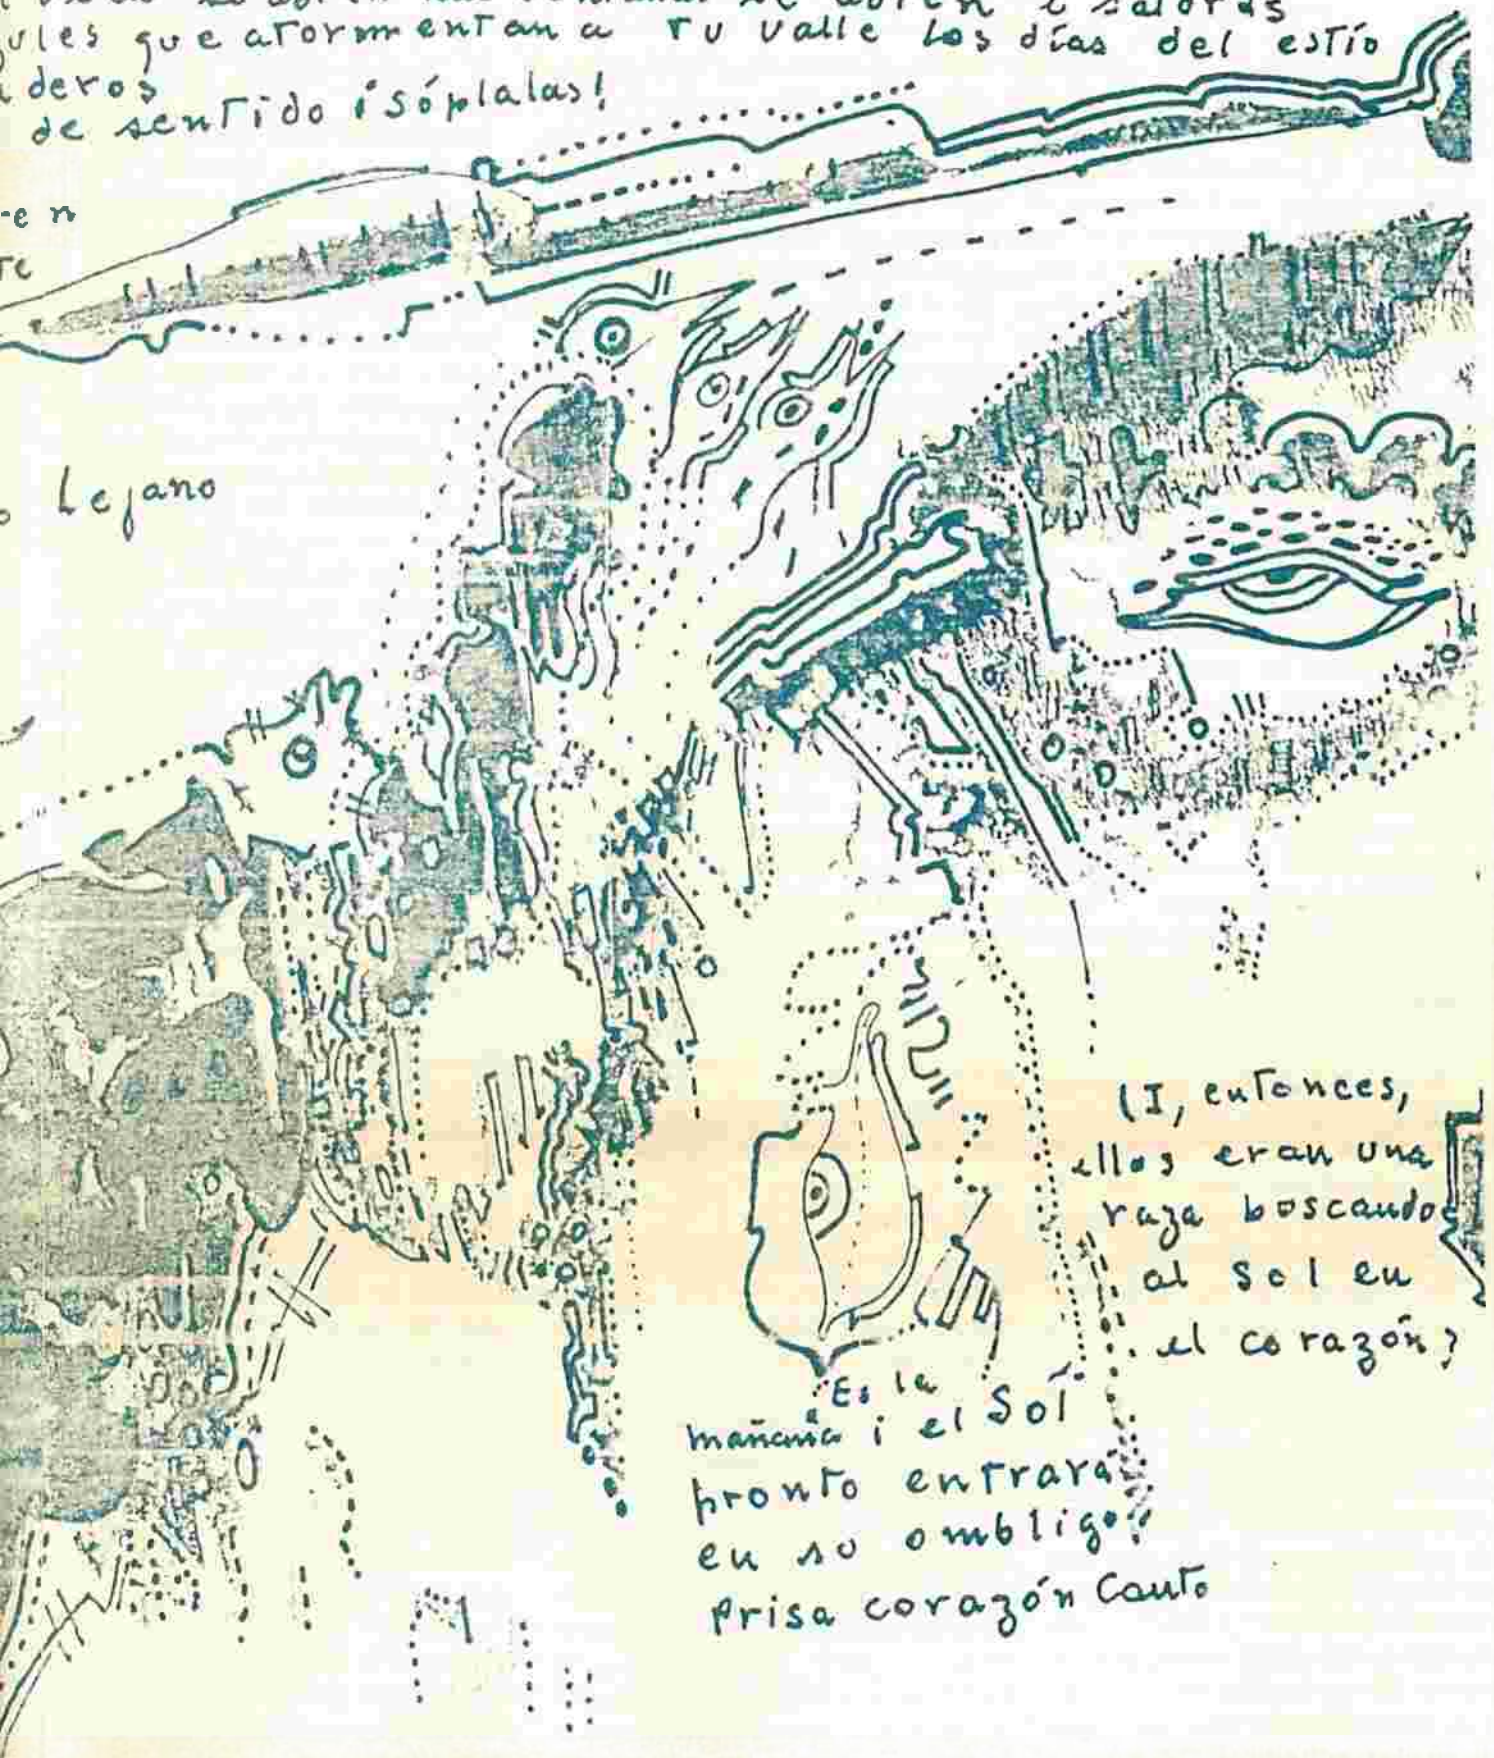 se abren
ules que atormentan a tu valle los días del estío
deros
de sentido ¡sóplalas!
en
te
Lejano
(I, entonces,
ellos eran una
raza buscando
al Sol en
el corazón?
Es la
mañana i el Sol
pronto entrará
en su ombligo
Prisa corazón Canto